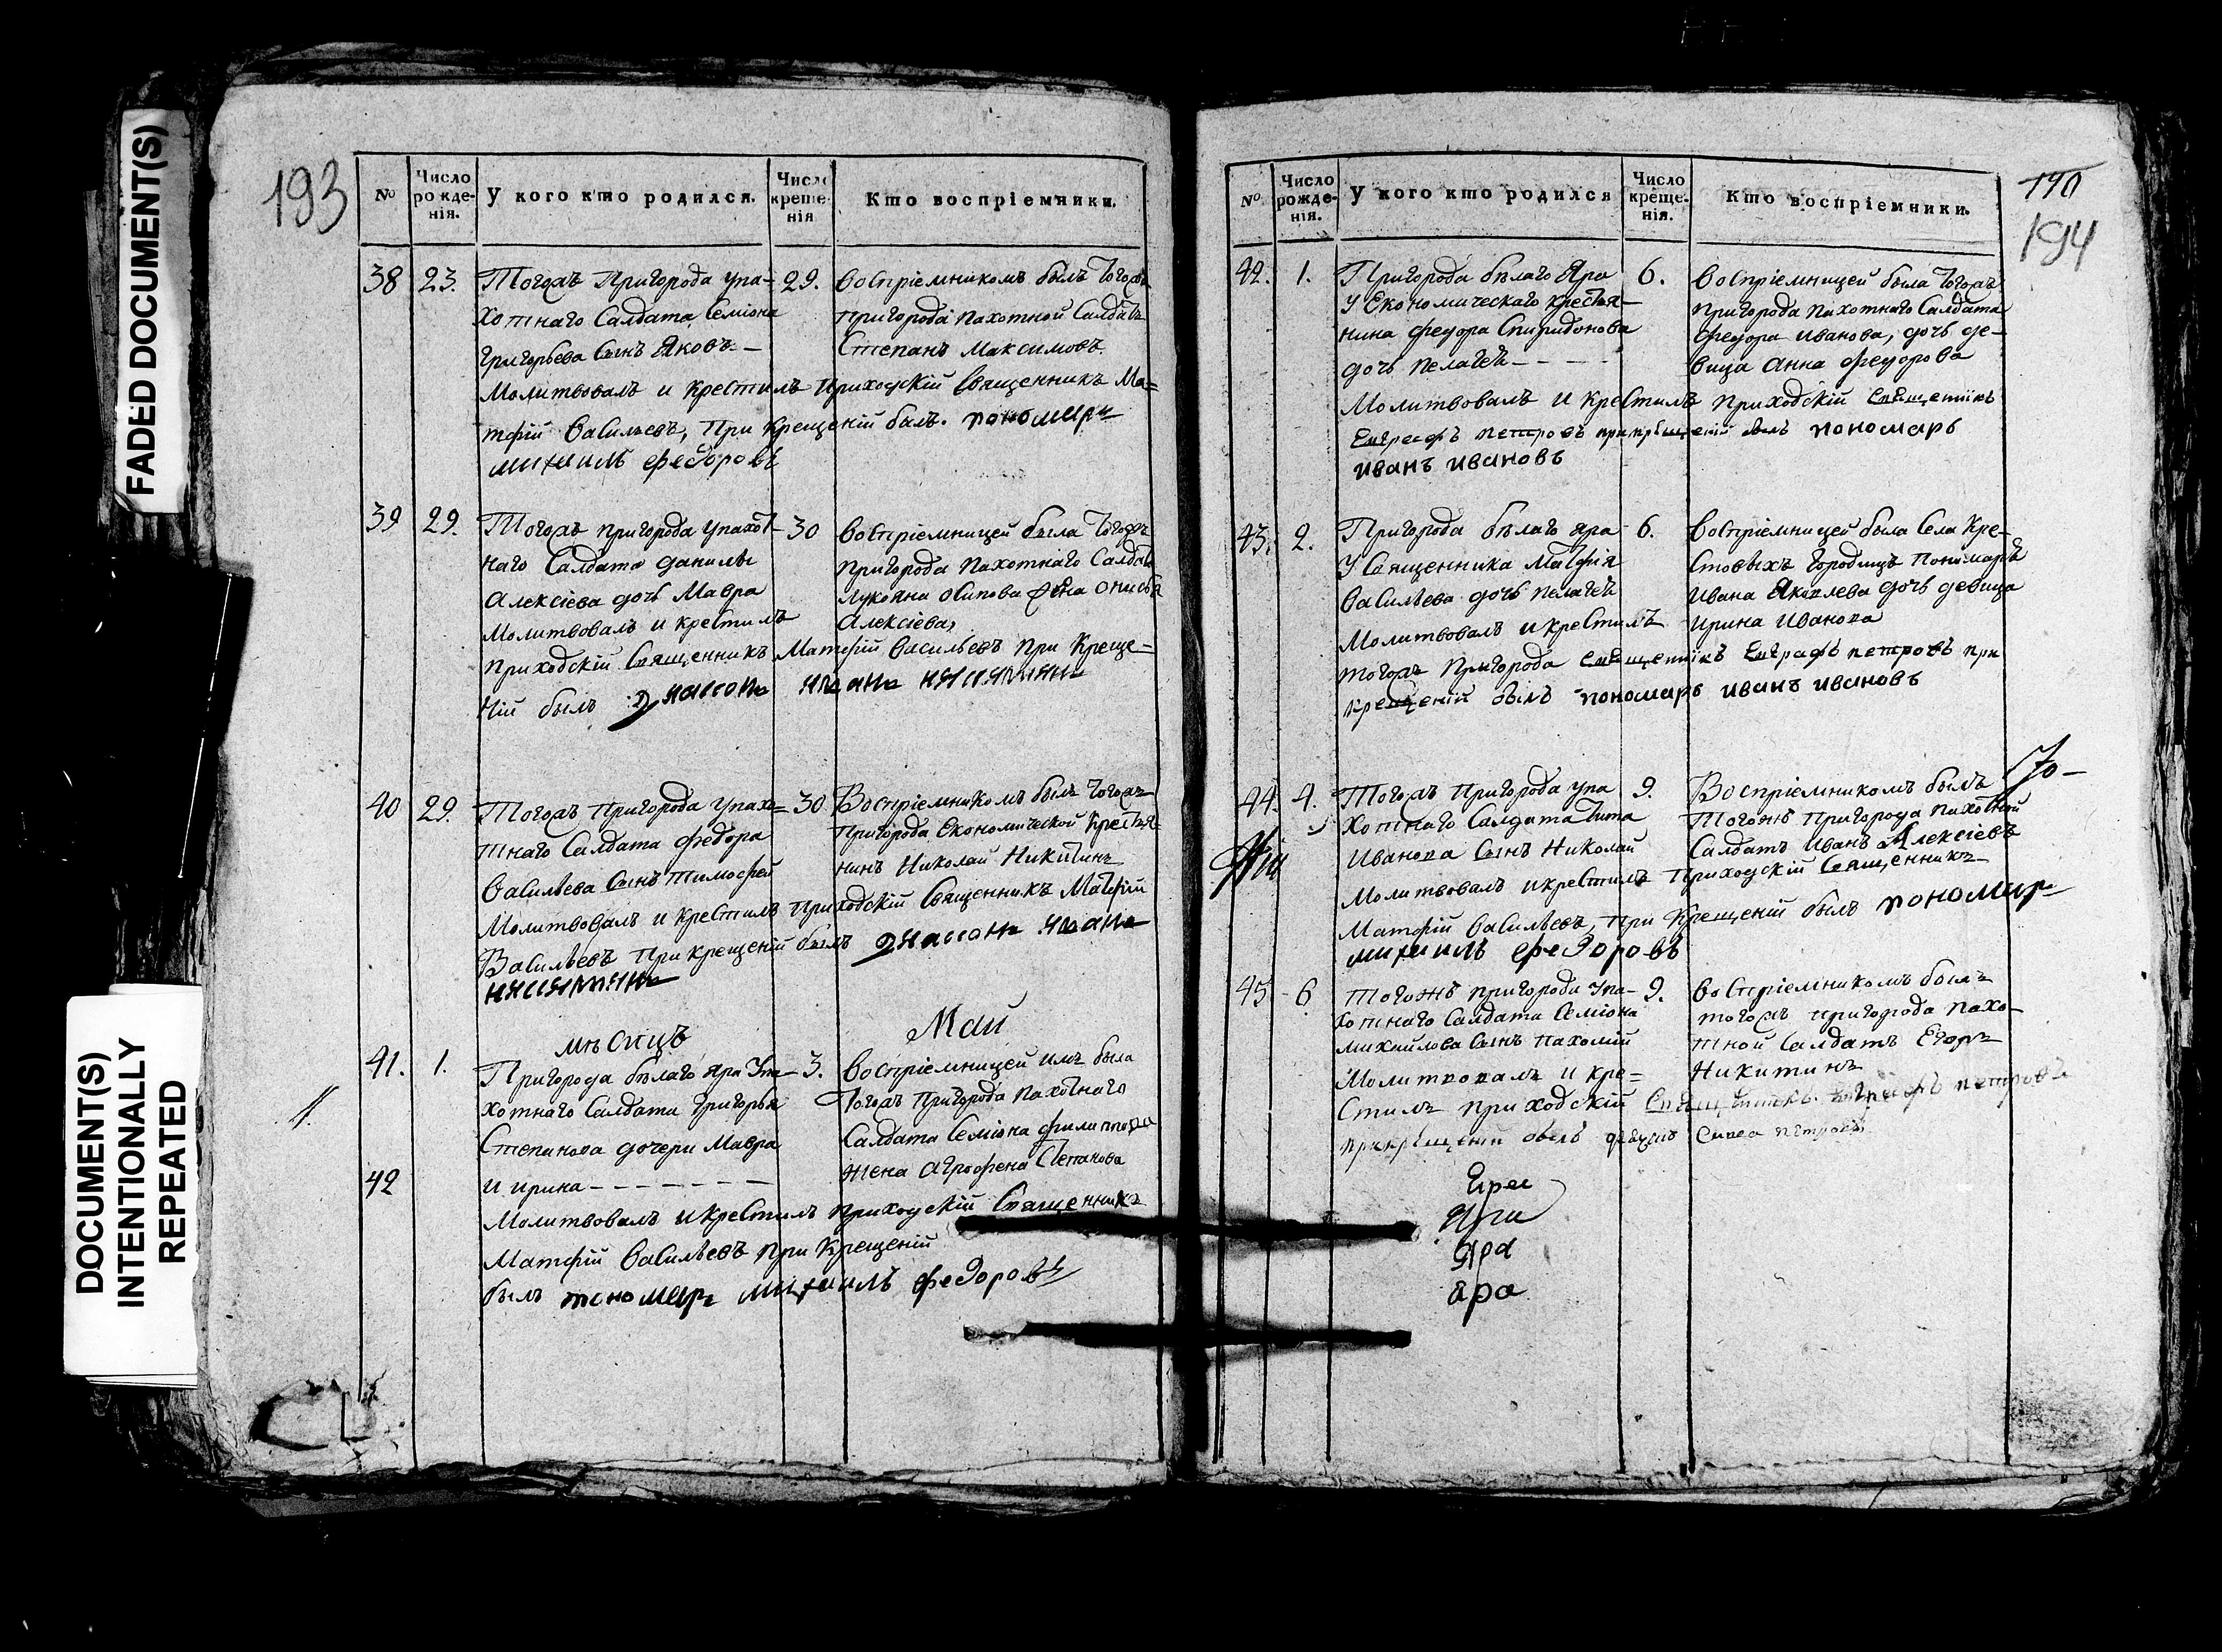 FADED DOCUMENT(S)
DOCUMENT(S)
INTENTIONALLY
REPEATED
193
№
Число рожденія.
У кого кто родился.
Число крещенія
Кто воспріемники.
38 23. Тогожъ Пригорода упа- 29. Воспріемникомъ былъ тогожъ
хотнаго Салдата Семіона пригорода пахотной Салдатъ
Григорьева Сынъ Яковъ - Степанъ Максимовъ
Молитвовалъ и крестилъ приходскій Священникъ Ма=
тфій Васильевъ, При крещеній былъ. пономарь
михаилъ федоровъ
39 29. Тогожъ пригорода упахот- 30 Воспріемницей была тогожъ
наго Салдата данилы пригорода пахотнаго Салдата
Алексіева дочь Мавра Лукояна Осипова
Молитвовалъ и крестилъ Алексіева,
приходскій Священникъ Матфій Васильевъ при Креще=
ній былъ
40 29. Тогожъ Пригорода упахо= 30 Воспріемникомъ былъ тогожъ
тнаго Салдата федора пригорода Економической крестья
Васильева Сынъ тимофей нинъ Николай Никитинъ
Молитвовалъ и крестилъ приходскій Священникъ Матфій
Васильевъ При крещеній былъ
мѣсяцъ Май
41. 1. Пригорода бѣлаго яра Упа- 3. Воспріемницей имъ была
хотнаго Салдата григорья тогожъ пригорода пахотнаго
Степанова дочери Мавра Салдата Семіона филипова
42 и ирина - - - - - - - жена Агрофена Степанова
Молитвовалъ и крестилъ приходскій Священникъ
Матфій Васильевъ при Крещеній
былъ пономарь михаилъ федоровъ
190
194
№
Число рожденія.
У кого кто родился
Число крещенія.
Кто воспріемники.
42. 1. Пригорода бѣлаго Яра 6. Воспріемницей была тогожъ
У Економическаго крестья- пригорода пахотнаго Салдата
нина федора Спиридонова федора иванова, дочь де-
дочь пелагея - - - - вица анна федорова
Молитвовалъ и крестилъ приходскій священникъ
Евграфъ петровъ при крещеніи былъ пономарь
иванъ ивановъ
43. 2. Пригорода бѣлаго яра 6. Воспріемницей была Села Кре-
У Священника Матфія стовыхъ городищъ пономаря
Васильева дочь пелагея ивана Яковлева дочь девица
Молитвовалъ и крестилъ ирина иванова
тогожъ пригорода священникъ Евграфъ петровъ при
крещеній былъ пономарь иванъ ивановъ
44. 4. Тогожъ Пригорода упа 9. Воспріемникомъ былъ
хотнаго Салдата тита тогожъ пригорода пахотной
Иванова Сынъ Николай Салдатъ Иванъ Алексіевъ
Молитвовалъ и крестилъ приходскій Священникъ
Матфій Васильевъ, при Крещеній былъ пономарь
михаилъ федоровъ
45 6 тогожъ пригорода упа- 9. Воспріемникомъ былъ
хотнаго Салдата Семіона тогожъ пригорода пахо-
михайлова Сынъ пахомій тной Салдатъ Егоръ
Молитвовалъ и кре= Никитинъ
стилъ приходскій Священникъ Евграфъ петровъ
при крещеніи былъ петровъ
Яра